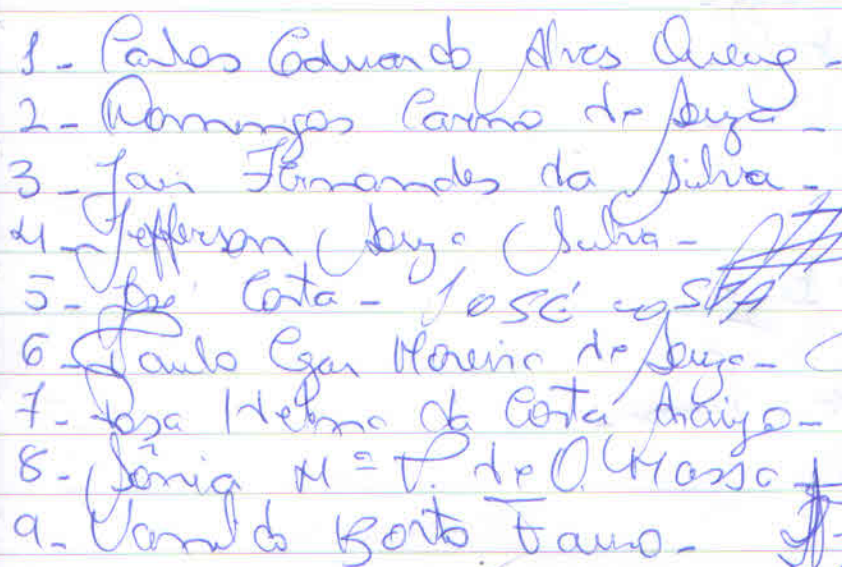 1- Carlos Eduardo Alves
2- Domingos de Souza -
3- Jair Fernandes da Silva -
4- Jefferson Souza Silva -
5- José Costa - JOSÉ COSTA
6- Paulo Cezar Moreira de Souza -
7- Rosa Helena da Costa Araújo -
8- Sônia Mª P. de O. Massa -
9- Vanildo Porto Fauro -